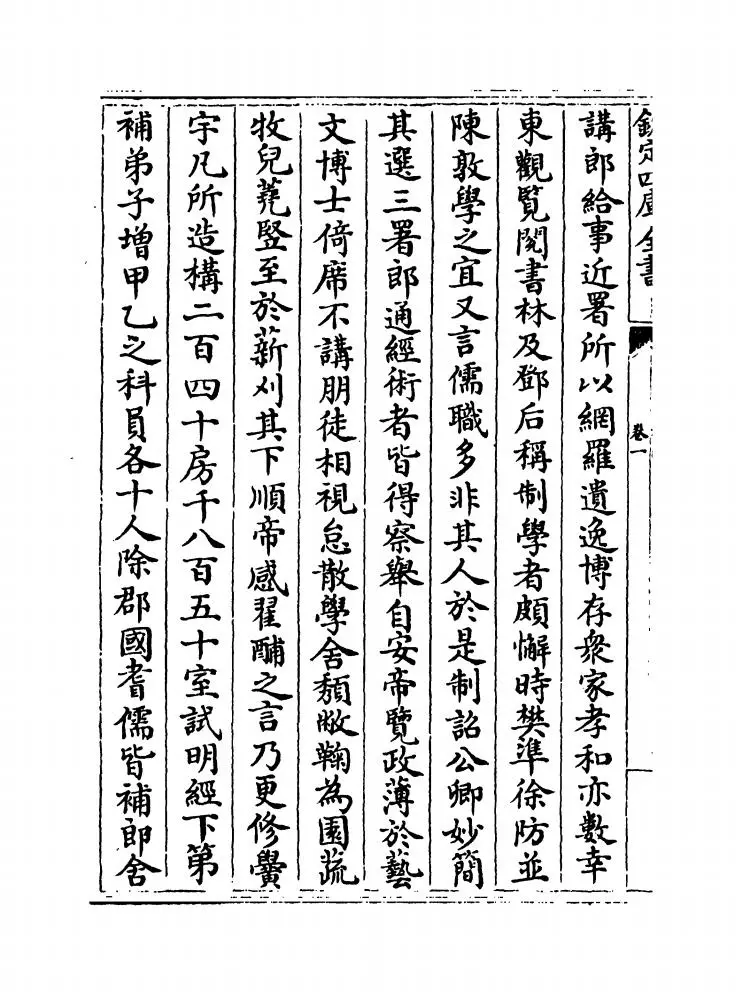 欽定四庫全書
卷一
講郎給事近署所以網羅遺逸博存衆家孝和亦數幸
東觀覽閱書林及鄧后稱制學者頗懈時樊準徐防並
陳敦學之宜又言儒職多非其人於是制詔公卿妙簡
其選三署郎通經術者皆得察舉自安帝覽政薄於藝
文博士倚席不講朋徒相視怠散學舍頽敝鞠為園蔬
牧兒蕘豎至於薪刈其下順帝感翟酺之言乃更修黌
宇凡所造構二百四十房千八百五十室試明經下第
補弟子增甲乙之科員各十人除郡國耆儒皆補郎舍